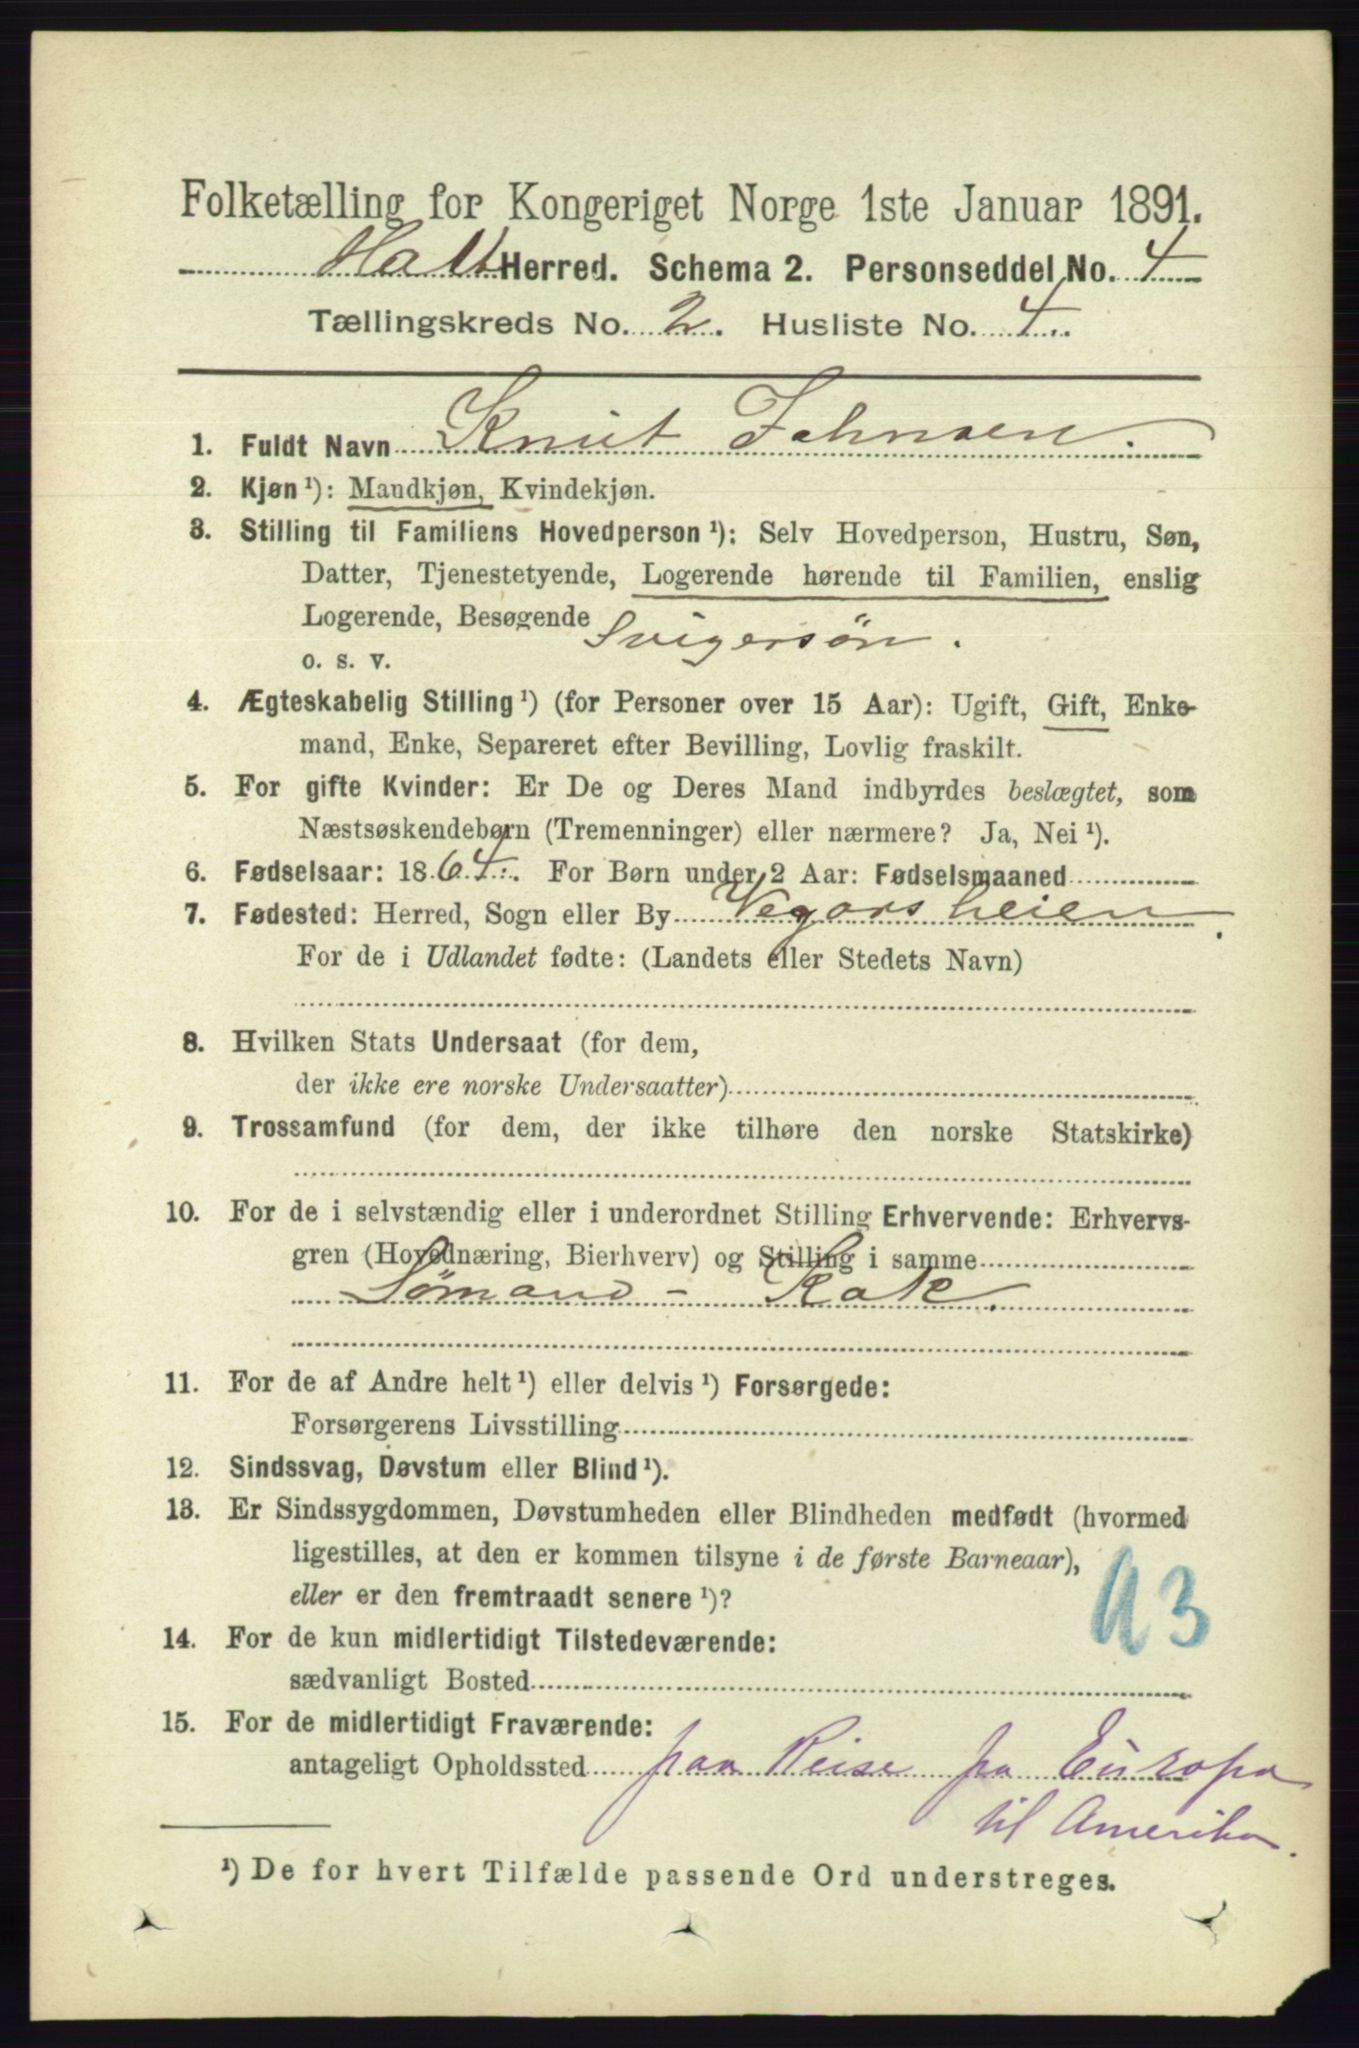 Folketælling for Kongeriget Norge 1ste Januar 1891.
Holt Herred. Schema 2. Personseddel No. 4
Tællingskreds No. 2. Husliste No. 4.
1. Fuldt Navn Knut Johnsen.
2. Kjøn ¹): Mandkjøn, Kvindekjøn.
3. Stilling til Familiens Hovedperson ¹): Selv Hovedperson, Hustru, Søn,
Datter, Tjenestetyende, Logerende hørende til Familien, enslig
Logerende, Besøgende Svigersøn.
o. s. v.
4. Ægteskabelig Stilling ¹) (for Personer over 15 Aar): Ugift, Gift, Enke-
mand, Enke, Separeret efter Bevilling, Lovlig fraskilt.
5. For gifte Kvinder: Er De og Deres Mand indbyrdes beslægtet, som
Næstsøskendebørn (Tremenninger) eller nærmere? Ja, Nei ¹).
6. Fødselsaar: 1864. For Børn under 2 Aar: Fødselsmaaned
7. Fødested: Herred, Sogn eller By Vegorsheien.
For de i Udlandet fødte: (Landets eller Stedets Navn)
8. Hvilken Stats Undersaat (for dem,
der ikke ere norske Undersaatter)
9. Trossamfund (for dem, der ikke tilhøre den norske Statskirke)
10. For de i selvstændig eller i underordnet Stilling Erhvervende: Erhvervs-
gren (Hovednæring, Bierhverv) og Stilling i samme
Sømand - Kok.
11. For de af Andre helt ¹) eller delvis ¹) Forsørgede:
Forsørgerens Livsstilling
12. Sindssvag, Døvstum eller Blind ¹).
13. Er Sindssygdommen, Døvstumheden eller Blindheden medfødt (hvormed
ligestilles, at den er kommen tilsyne i de første Barneaar),
eller er den fremtraadt senere ¹)?
A3
14. For de kun midlertidigt Tilstedeværende:
sædvanligt Bosted
15. For de midlertidigt Fraværende:
antageligt Opholdssted paa Reise fra Europa
til Amerika.
¹) De for hvert Tilfælde passende Ord understreges.